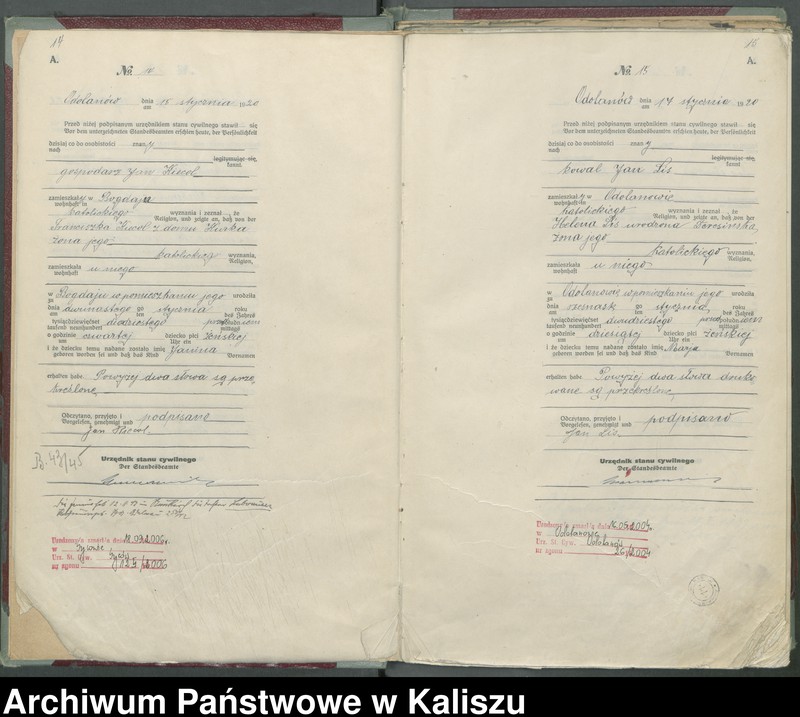 14
A.
№ 14
Odolanów dnia am 15 stycznia 1920
Przed niżej podpisanym urzędnikiem stanu cywilnego stawił się
Vor dem unterzeichneten Standesbeamten erschien heute, der Persönlichkeit
dzisiaj co do osobistości znany
nach
legitymując się,
kannt,
gospodarz Jan
zamieszkały w Bogdaju
wohnhaft in
katolickiego wyznania i zeznał, że
Religion, und zeigte an, daß von der
Franciszka z domu
żona jego
katolickiej wyznania,
Religion,
zamieszkała u niego
wohnhaft
w Bogdaju w pomieszkaniu jego urodziła
zu
dnia dwunastego stycznia roku
am ten des Jahres
tysiącdziewięćset dwudziestego przedpołudniem
tausend neunhundert mittags
o godzinie czwartej dziecko płci żeńskiej
um Uhr ein
i że dziecku temu nadane zostało imię Janina
geboren worden sei und daß das Kind Vornamen
erhalten habe. Powyżej dwa słowa są prze
kreślone.
Odczytano, przyjęto i podpisane
Vorgelesen, genehmigt und
Jan
Urzędnik stanu cywilnego
Der Standesbeamte
B. 43/45
w
Urz. St. Cyw.
15
A.
№ 15
Odolanów dnia am 14 stycznia 1920
Przed niżej podpisanym urzędnikiem stanu cywilnego stawił się
Vor dem unterzeichneten Standesbeamten erschien heute, der Persönlichkeit
dzisiaj co do osobistości znany
nach
legitymując się,
kannt,
kowal Jan Lis
zamieszkały w Odolanowie
wohnhaft in
katolickiego wyznania i zeznał, że
Religion, und zeigte an, daß von der
Helena Lis urodzona
żona jego
katolickiego wyznania,
Religion,
zamieszkała u niego
wohnhaft
w Odolanowie w pomieszkaniu jego urodziła
zu
dnia stycznia roku
am ten des Jahres
tysiącdziewięćset dwudziestego
tausend neunhundert mittags
o godzinie dziesiątej dziecko płci żeńskiej
um Uhr ein
i że dziecku temu nadane zostało imię Marja
geboren worden sei und daß das Kind Vornamen
erhalten habe. Powyżej dwa słowa druko
wane są przekreślone.
Odczytano, przyjęto i podpisano
Vorgelesen, genehmigt und
Jan Lis
Urzędnik stanu cywilnego
Der Standesbeamte
w Odolanowie
Urz. St. Cyw. Odolanów
Archiwum Państwowe w Kaliszu